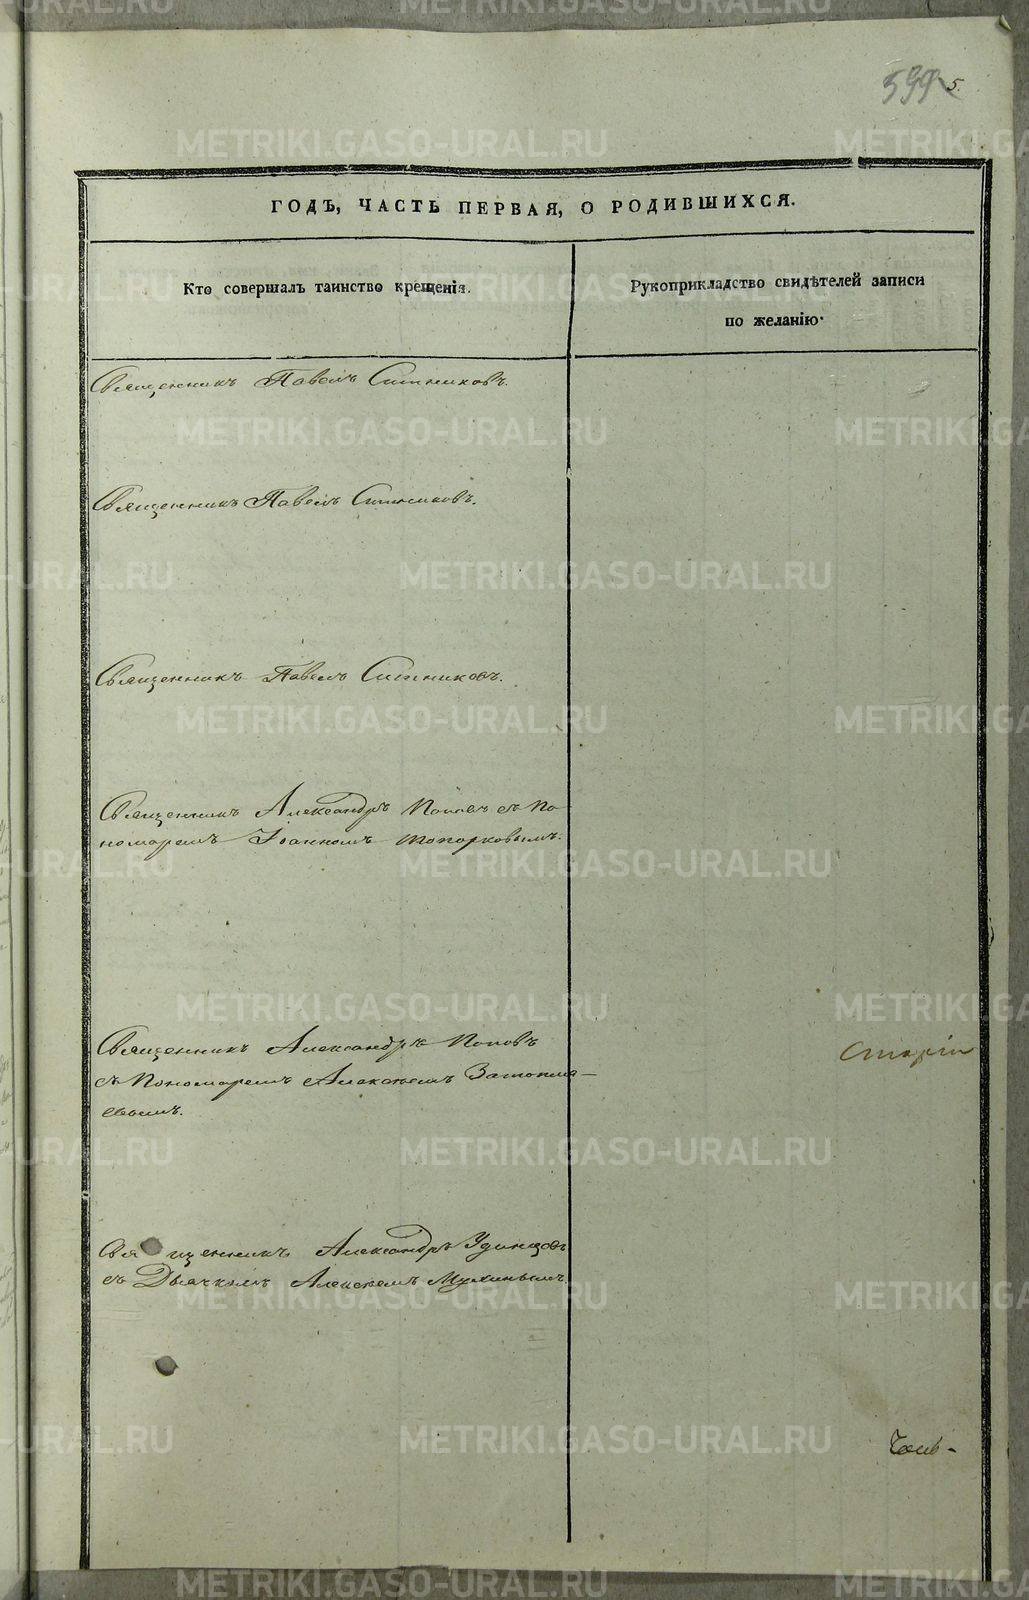 599 5.
ГОДЪ, ЧАСТЬ ПЕРВАЯ, О РОДИВШИХСЯ.
Кто совершалъ таинство крещенія.
Рукоприкладство свидѣтелей записи
по желанію.
Священникъ Павелъ Ситниковъ.
Священникъ Павелъ Ситниковъ.
Священникъ Павелъ Ситниковъ.
Священникъ Александръ Поповъ съ По
номаремъ Іоанномъ Топорковымъ.
Священникъ Александръ Поповъ
съ Пономаремъ Алексѣемъ Затопля-
евымъ.
Священникъ Александръ Удинцовъ
съ Дьячкомъ Алексѣемъ Мухинымъ.
METRIKI.GASO-URAL.RU